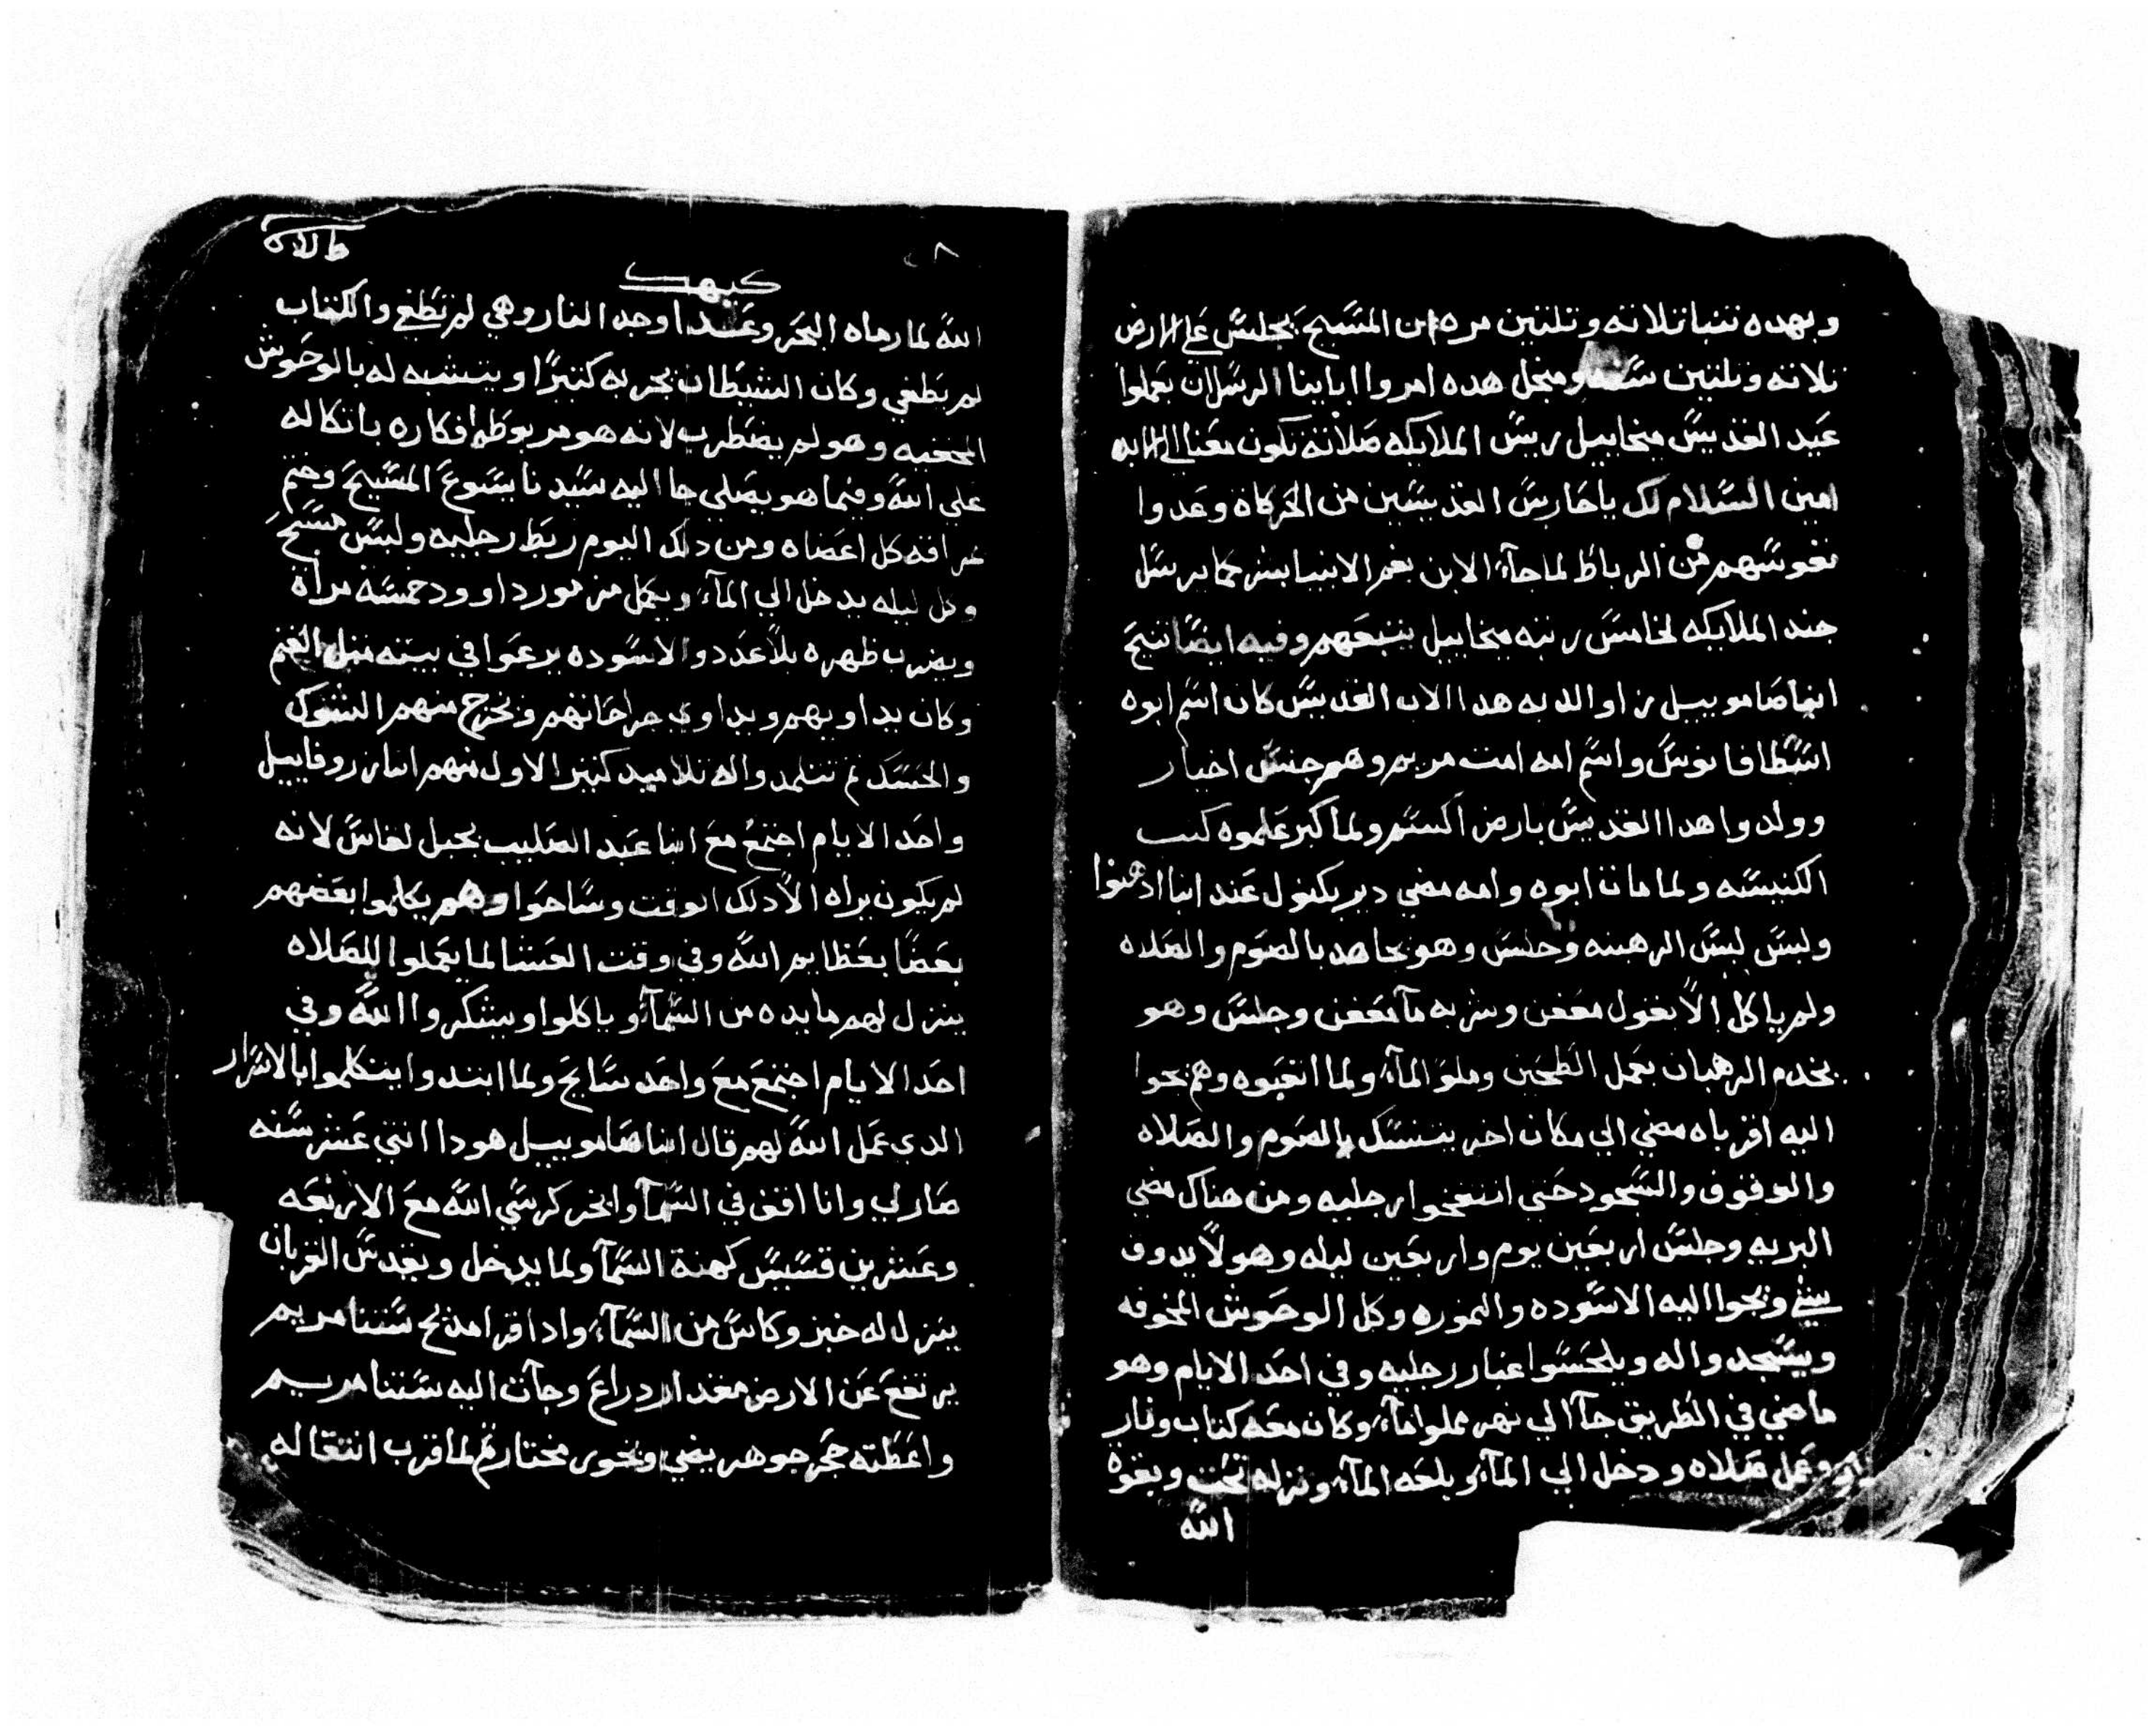 وبهده تنبا تلاته وتلتين مره ان المسيح يجلس علي الارض
تلاته وتلتين سنه ومنجل هده امروا اباينا الرسلان يعملوا
عيد القديس ميخاييل ريس الملايكه صلاته تكون معنا الي الابد
امين السلام لك ياحارس القديسين من الحركاة وعدوا
نفوسهم من الرباط لما جآء الابن بفم الانبيا بشر كما يرسل
جند الملايكه لخامس رتبه ميخاييل يتبعهم وفيه ايضا تنيح
انبا صاموييل من اوالدبه هدا الاب القديس كان اسم ابوه
اسطافانوس واسم امه امت مريم وهم جنس اخيار
وولدوا هدا القديس بارض اكسم ولما كبر علموه كتب
الكنيسه ولما مات ابوه وامه مضي دير بكنول عند انبا ادهنوا
ولبس لبس الرهبنه وجلس وهو يجاهد بالصوم والصلاه
ولم ياكل الا بقول معفن وشربه مآ معفن وجلس وهو
يخدم الرهبان بعمل الطحين وملو المآء ولما اتعبوه وهم يجوا
اليه اقرباه مضي الي مكان اخر يتنسك بالصوم والصلاه
والوقوف والسجود حتي انتفخوا رجليه ومن هناك مضي
البريه وجلس اربعين يوم واربعين ليله وهو لا يدوق
شي ويجوا اليه الاسوده والنموره وكل الوحوش المخوفه
ويسجدوا له ويلحسوا غبار رجليه وفي احد الايام وهو
ماضي في الطريق جآ الي نهر مملوا مآء وكان معه كتاب ونار
وعمل صلاه ودخل الي المآء وبلعه المآء ونزله تحت وبقوة
الله
كيهك
الله لما رماه البحر وعندا وجد النار وهي لم تطفي والكتاب
لم يطفي وكان الشيطان يجربه كتيرا ويتشبه له بالوحوش
المخفيه وهو لم يضطرب لانه هو مربوط افكاره باتكاله
علي الله وفيما هو يصلي جا اليه سيدنا يسوع المسيح وختم
كل اعضاه ومن دلك اليوم ربط رجليه ولبس مسح
وكل ليله يدخل الي المآء ويكمل مزمور داوود خمسة مراة
ويضرب ظهره بلا عدد والاسوده يرعوا في بيته متل الغنم
وكان يداويهم ويداوي جراحاتهم ويخرج منهم الشوك
والحسك تم تتلمدوا له تلاميد كتير الاول منهم انبا زروفاييل
واحد الايام اجتمع مع انبا عبد الصليب بجبل لفاس لانه
لم يكون يراه الا دلك الوقت وساحوا وهم يكلموا بعضهم
بعضا بعظايم الله وفي وقت العشا لما يعملوا للصلاه
ينزل لهم مايده من السمآء وياكلوا ويشكروا الله وفي
احد الايام اجتمع مع واحد سايح ولما ابتدوا يتكلموا بالاسرار
الدي عمل الله لهم قال انبا صاموييل هودا اتني عشر سنه
صار لي وانا اقف في السمآ وابخر كرسي الله مع الاربعه
وعشرين قسيس كهنة السمآ ولما يدخل ويقدس القربان
ينزل له خبز وكاس من السمآء وادا قرا مديح ستنا مريم
يرتفع عن الارض مقدار دراع وجآت اليه ستنا مريم
واعطته حجر جوهر يضي وبخور مختار تم لما قرب انتقاله